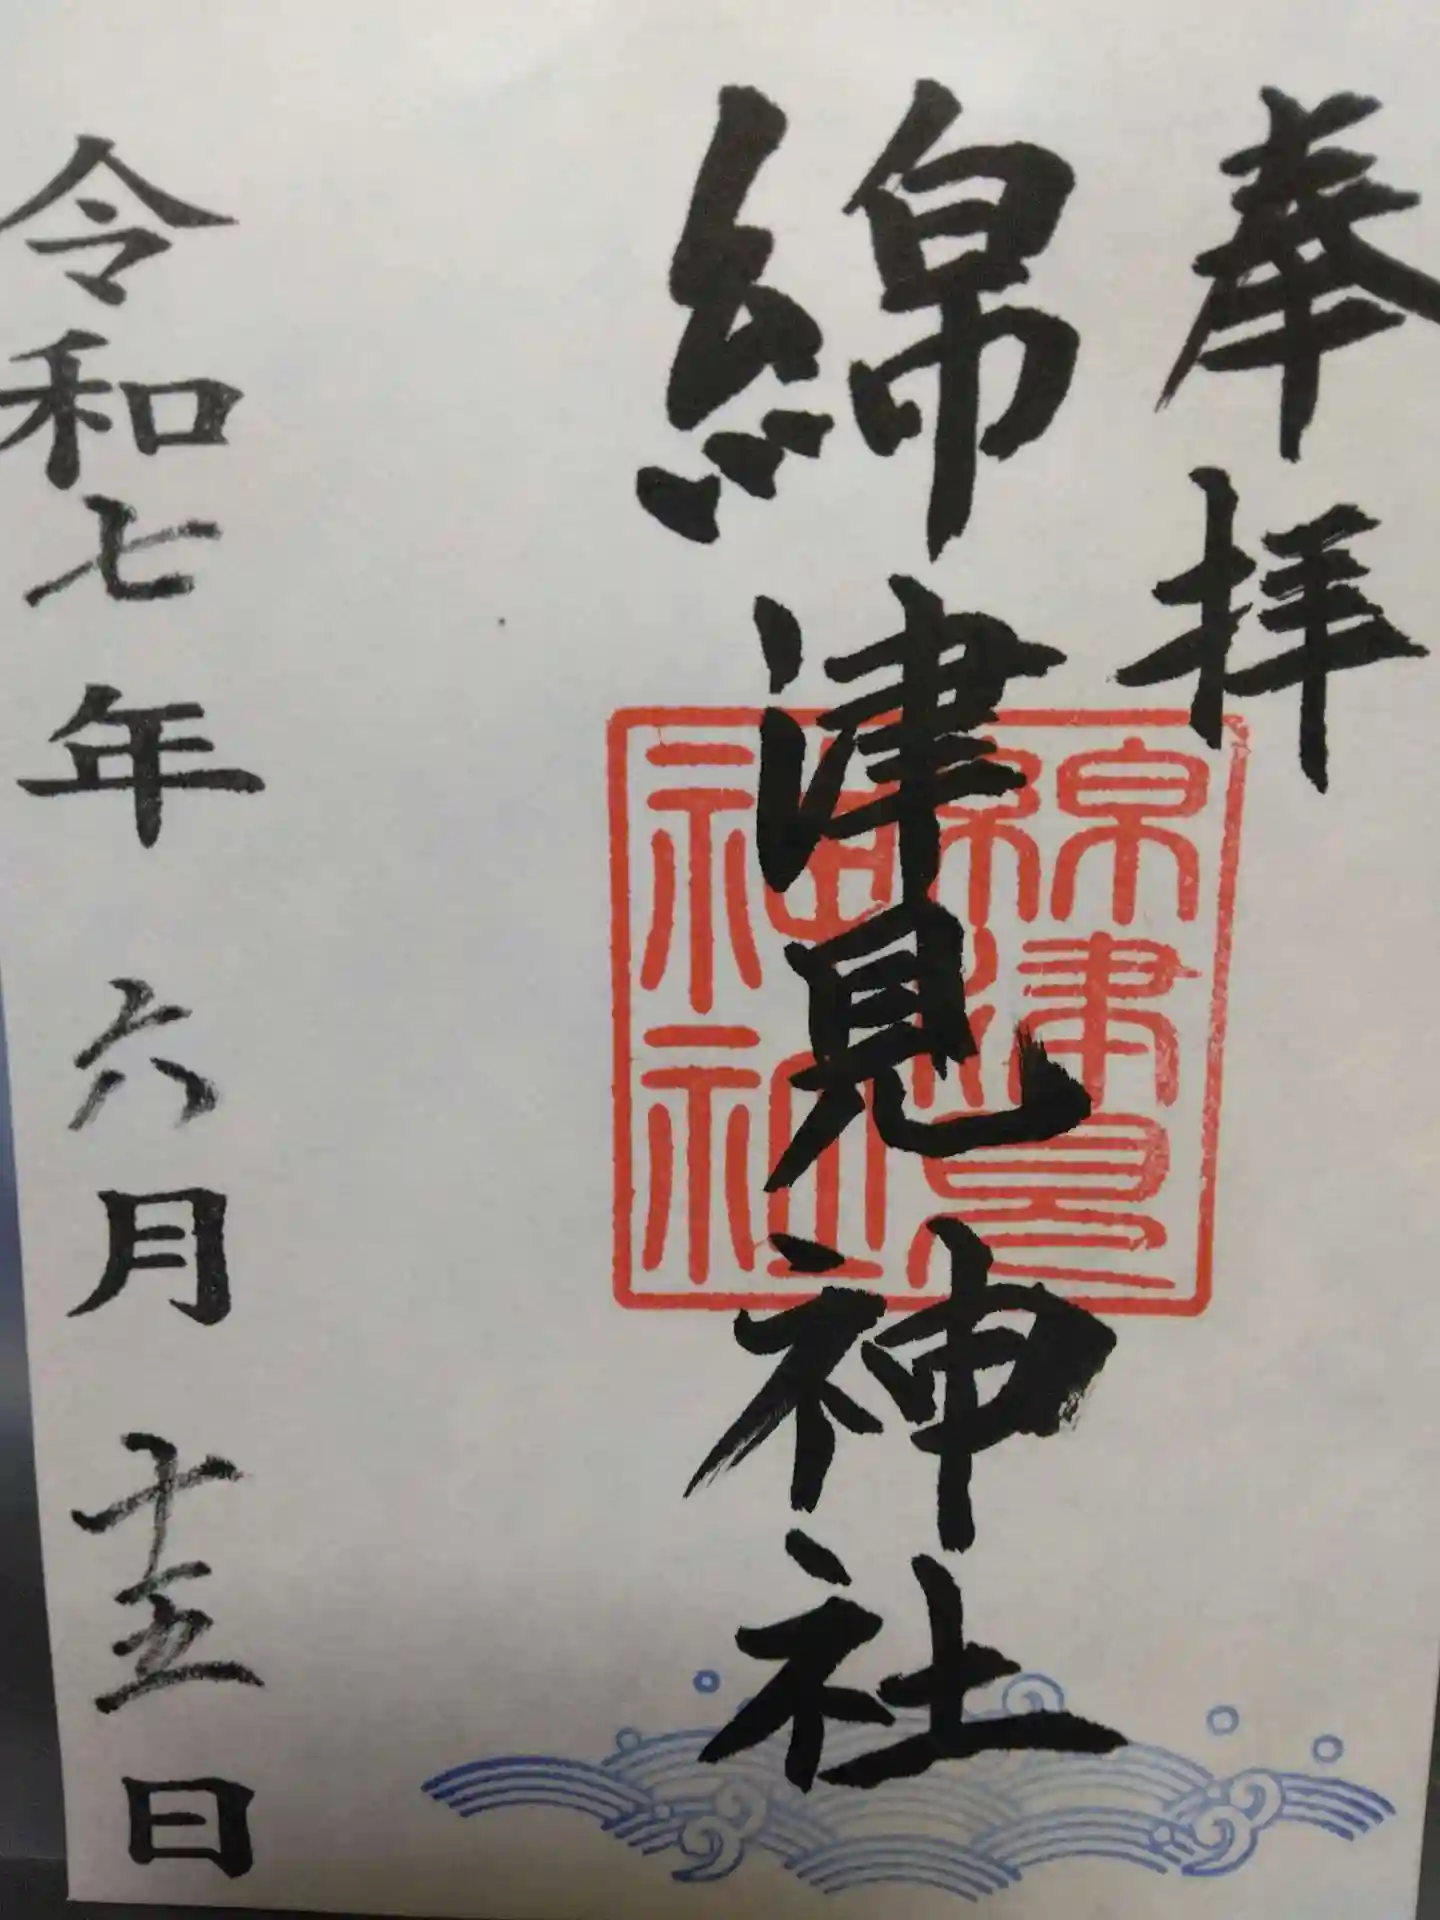 奉拝
綿津見神社
綿津見
神社
令和七年六月十五日